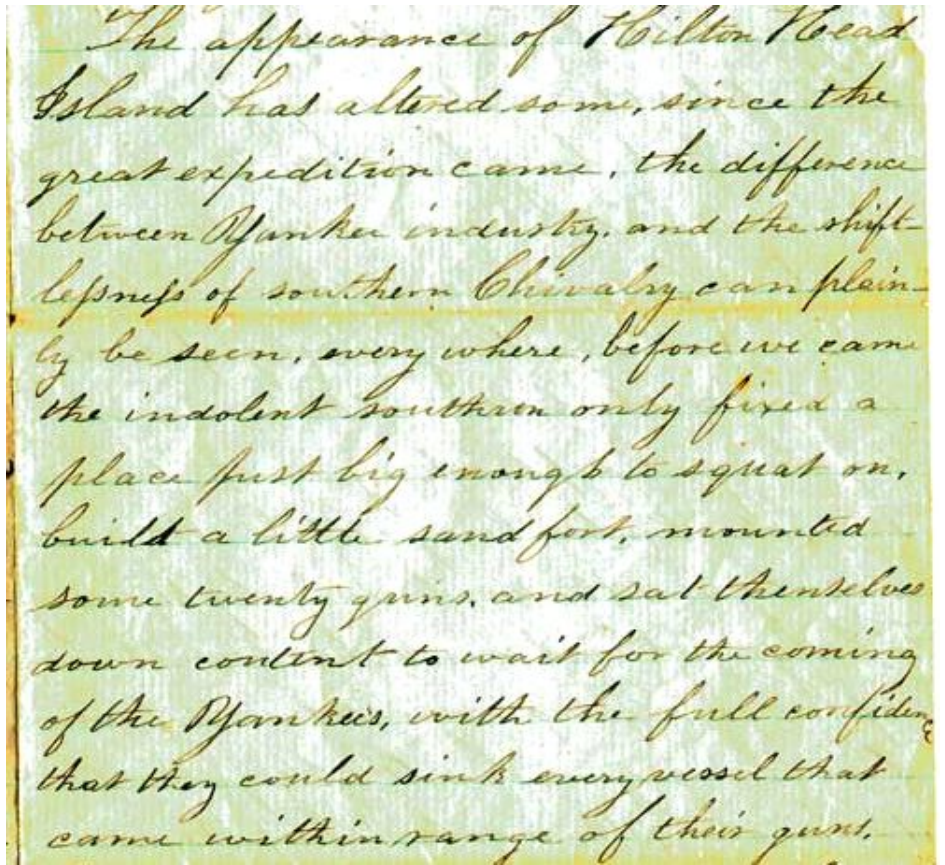 The appearance of Hilton Head
Island has altered some, since the
great expedition came, the difference
between Yankee industry, and the shift-
lessness of southern Chivalry can plain-
ly be seen, every where, before we came
the indolent southron only fixed a
place just big enough to squat on,
build a little sand fort, mounted
some twenty guns, and sat themselves
down content to wait for the coming
of the Yankees, with the full confidence
that they could sink every vessel that
came within range of their guns.